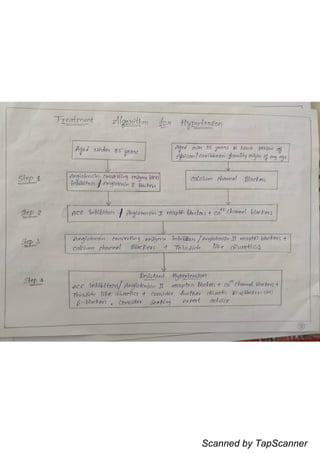 Treatment Algorithm for Hypertension
Aged under 55 years
Aged over 55 years or black person of
African / caribbean family origin of any age
Step 1
Angiotensin converting enzyme
Inhibitors / Angiotensin II blockers
calcium channel blockers
Step 2
ACE Inhibitors / Angiotensin II receptor blockers + Ca channel blockers
Step 3
Angiotensin converting enzyme Inhibitors / Angiotensin II receptor blockers +
calcium channel Blockers + Thiazide like diuretics
Step 4
Resistant Hypertension
ACE Inhibitors / Angiotensin II receptor blockers + Ca channel blockers +
Thiazide like diuretics + consider further diuretic
β-blockers, consider seeking expert advice
Scanned by TapScanner